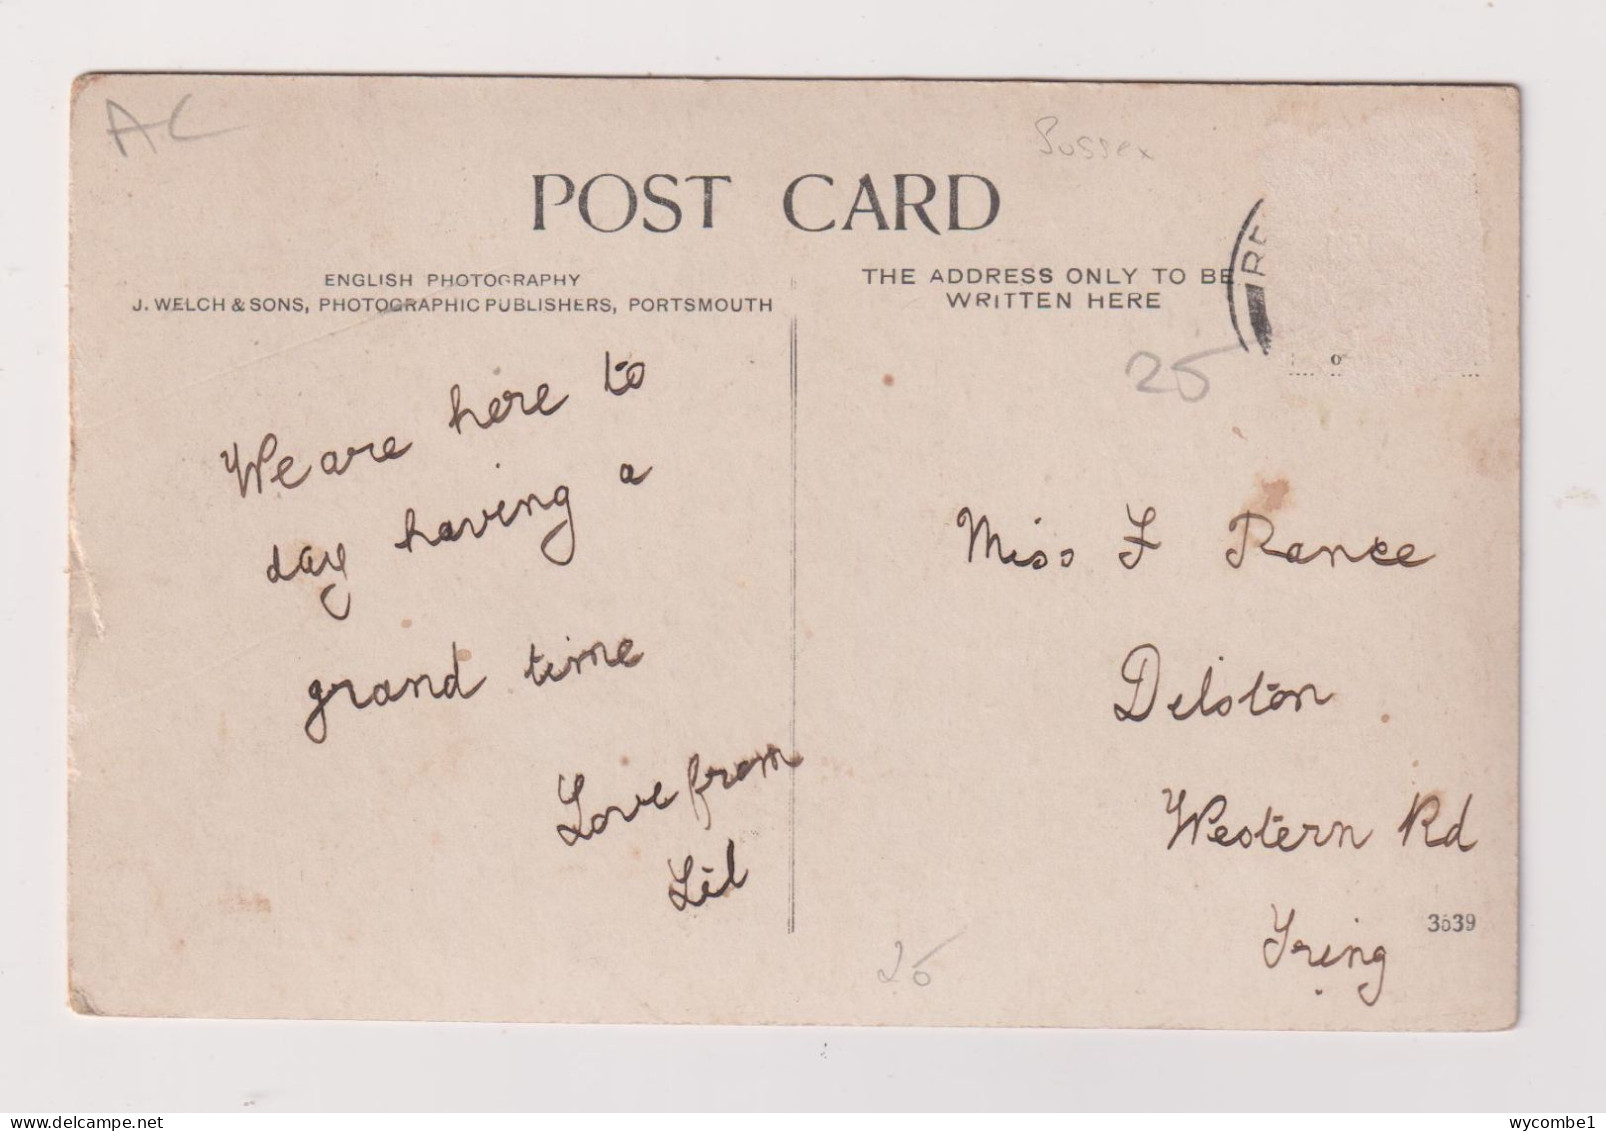 AC
Sussex
POST CARD
ENGLISH PHOTOGRAPHY
J. WELCH & SONS, PHOTOGRAPHIC PUBLISHERS, PORTSMOUTH
THE ADDRESS ONLY TO BE
WRITTEN HERE
25
We are here to
day having a
grand time
Love from
Lil
Miss F Rance
Delston
Western Rd
Tring
3639
25
wycombe1